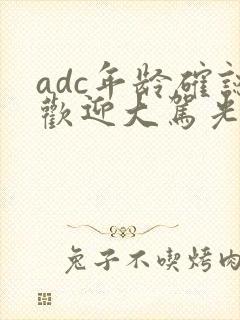 adc年龄確認
歡迎大駕光
兔子不喫烤肉